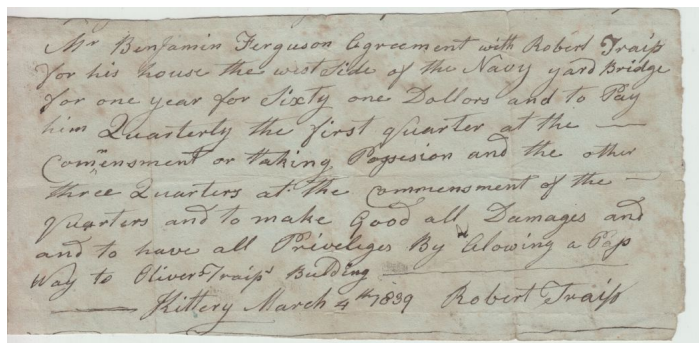 Mr Benjamin Ferguson Agreement with Robert Traip
for his house the west Side of the Navy yard Bridge
for one year for Sixty one Dollors and to Pay
him Quarterly the first quarter at the —
Commensment or taking Possesion and the other
three Quarters at the Commensment of the —
Quarters and to make Good all Damages and
and to have all Priveliges By Alowing a Pass
Way to Olivers Traips Bulding
Kittery March 4th 1839 Robert Traip